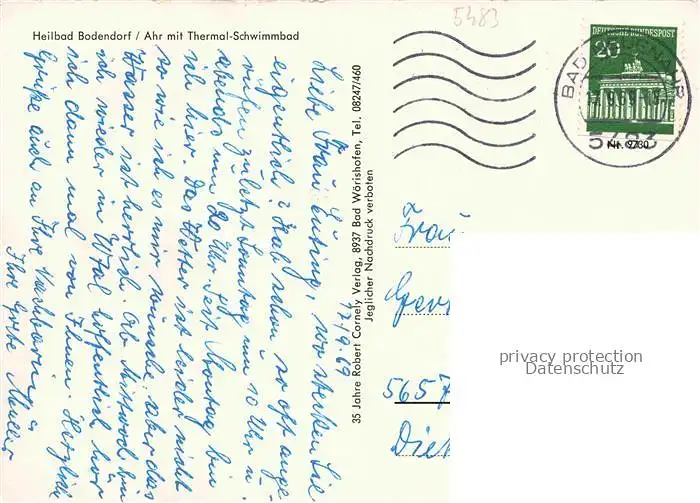 Heilbad Bodendorf / Ahr mit Thermal-Schwimmbad
5483
DEUTSCHE BUNDESPOST
20
BAD
5483
Nr. 9730
17.9.69
Liebe Frau Lüting, wo stecken Sie
eigentlich? Hab schon so oft ange-
rufen zuletzt Sonntag um 10 Uhr u.
abends um 20 Uhr. Seit Montag bin
ich hier. Das Wetter ist leider nicht
so wie ich es mir wünsche, aber das
Wasser ist herrlich. Ab Mittwoch bin
ich wieder in Wtal hoffentlich hör
ich dann mal von Ihnen. Herzliche
Grüße auch an Ihre Nachbarin
Ihre Müller
35 Jahre Robert Cornely Verlag, 8937 Bad Wörishofen, Tel. 08247/460
Jeglicher Nachdruck verboten
Frau
565
privacy protection
Datenschutz